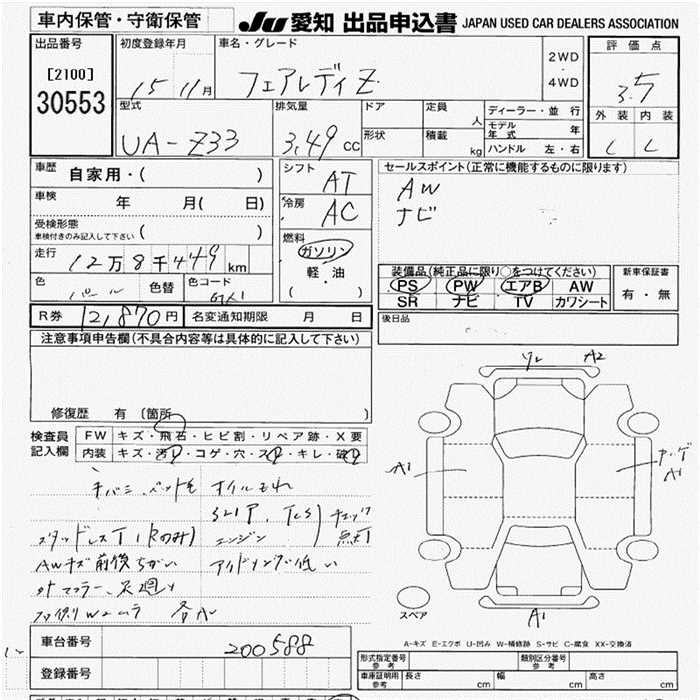 車内保管・守衛保管
JU 愛知 出品申込書 JAPAN USED CAR DEALERS ASSOCIATION
出品番号
[2100]
30553
初度登録年月
15 11月
車名・グレード
フェアレディZ
2WD
・
4WD
評価点
3.5
外装 内装
C C
型式
UA-Z33
排気量
3.49 cc
ドア
形状
定員 人
積載 kg
ディーラー・並行
モデル年式 年
ハンドル 左・右
車歴
自家用・( )
車検 年 月( 日)
受検形態
車検付きのみ記入して下さい ( )
走行 12万8千449 km
色 パール 色替 色コード
シフト AT
冷房 AC
燃料
ガソリン
軽・油
( )
セールスポイント(正常に機能するものに限ります)
AW
ナビ
装備品(純正品に限り○をつけてください)
PS PW エアB AW
SR ナビ TV カワシート
新車保証書
有・無
後日品
R券 12,870円 名変通知期限 月 日
注意事項申告欄(不具合内容等は具体的に記入して下さい)
修復歴 有 〔箇所 〕
検査員記入欄
FW キズ・飛石・ヒビ割・リペア跡・X要
内装 キズ・汚・コゲ・穴・ス・キレ・破
オイルもれ
SLIP、TCS チェック
スタッドレスT(Rのみ) エンジン 点灯
AWキズ 前後ちがい アイドリング低い
社外マフラー、足廻り
ワレ A2
A1
A1
A1
スペア
A-キズ E-エクボ U-凹み W-補修跡 S-サビ C-腐食 XX-交換済
車台番号 200588
登録番号
形式指定番号 参考
類別区分番号 参考
車庫証明用 参考 長さ cm 幅 cm 高さ cm